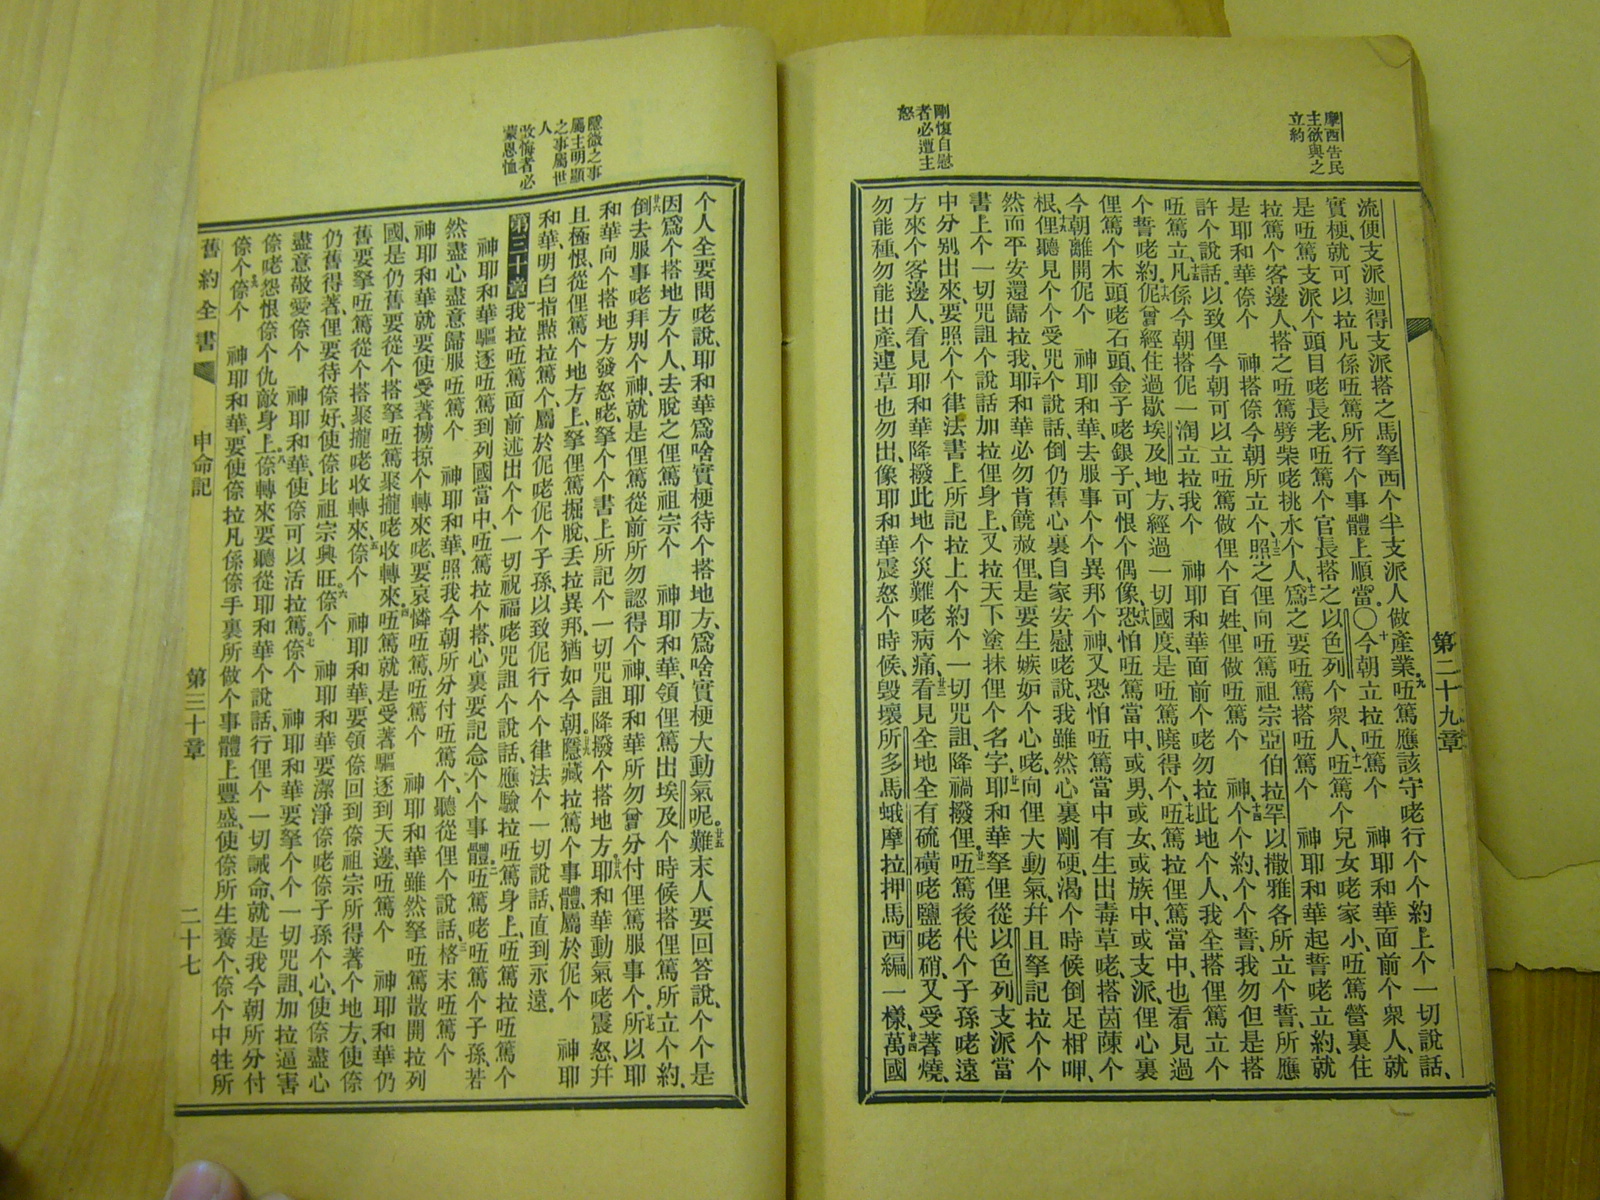 摩西告民
主欲與之
立約
剛愎自慰
者必遭主
怒
第二十九章
流便支派迦得支派搭之馬拏西个半支派人做產業九伍篤應該守咾行个个約上个一切說話、
實梗就可以拉凡係伍篤所行个事體上順當。〇十今朝立拉伍篤个 神耶和華面前个衆人、就
是伍篤支派个頭目咾長老、伍篤个官長搭之以色列个衆人、十一伍篤个兒女咾家小、伍篤營裏住
拉篤个客邊人、搭之伍篤劈柴咾挑水个人、十二爲之要伍篤搭伍篤个 神耶和華起誓咾立約、就
是耶和華倷个 神搭倷今朝所立个、十三照之俚向伍篤祖宗亞伯拉罕以撒雅各所立个誓、所應
許个說話、以致俚今朝可以立伍篤做俚个百姓俚做伍篤个 神、十四个个約、个个誓、我勿但是搭
伍篤立、十五凡係今朝搭伲一淘立拉我个 神耶和華面前个咾勿拉此地个人、我全搭俚篤立个
个誓咾約、十六伲曾經住過歇埃及地方、經過一切國度、是伍篤曉得个、十七伍篤拉俚篤當中、也看見過
俚篤个木頭咾石頭、金子咾銀子、可恨个偶像、十八恐怕伍篤當中、或男、或女、或族中、或支派、俚心裏
今朝離開伲个 神耶和華、去服事个个異邦个神、又恐怕伍篤當中有生出毒草咾、搭茵蔯个
根、十九俚聽見个个受咒个說話、倒仍舊心裏自家安慰咾說、我雖然心裏剛硬、渴个時候倒足相呷、
然而平安還歸拉我、二十耶和華必勿肯饒赦俚、是要生嫉妬个心咾、向俚大動氣、幷且拏記拉个个
書上个一切咒詛个說話加拉俚身上、又拉天下塗抹俚个名字、廿一耶和華拏俚從以色列支派當
中分别出來、要照个个律法書上所記拉上个約个一切咒詛、降禍撥俚、廿二伍篤後代个子孫咾遠
方來个客邊人、看見耶和華降撥此地个災難咾病痛、廿三看見全地全有硫磺咾鹽咾硝、又受著燒、
勿能種、勿能出產、連草也勿出、像耶和華震怒个時候、毀壞所多馬蛾摩拉押馬西編一樣、廿四萬國
隱微之事
屬主明顯
之事屬世
人
攺悔者必
蒙恩恤
个人全要問咾說、耶和華爲啥實梗待个搭地方、爲啥實梗大動氣呢、廿五難末人要回答說、个个是
因爲个搭地方个人、去脫之俚篤祖宗个 神耶和華、領俚篤出埃及个時候搭俚篤所立个約、
廿六倒去服事咾拜別个神、就是俚篤從前所勿認得个神、耶和華所勿曾分付俚篤服事个、廿七所以耶
和華向个搭地方發怒咾、拏个个書上所記个一切咒詛降撥个搭地方、廿八耶和華動氣咾震怒、幷
且極恨、從俚篤个地方上、拏俚篤掘脫、丟拉異邦、猶如今朝、廿九隱藏拉篤个事體屬於伲个 神耶
和華、明白指㸃拉篤个、屬於伲咾伲个子孫、以致伲行个个律法个一切說話、直到永遠。
第三十章 一我拉伍篤面前述出个个一切祝福咾咒詛个說話、應驗拉伍篤身上、伍篤拉伍篤个
神耶和華驅逐伍篤到列國當中、伍篤拉个搭、心裏要記念个个事體、二伍篤咾伍篤个子孫、若
然盡心盡意歸服伍篤个 神耶和華、照我今朝所分付伍篤个、聽從俚个說話、三格末伍篤个
神耶和華就要使受著擄掠个轉來咾、要哀憐伍篤、伍篤个 神耶和華雖然拏伍篤散開拉列
國、是仍舊要從个搭拏伍篤聚攏咾收轉來、四伍篤就是受著驅逐到天邊、伍篤个 神耶和華仍
舊要拏伍篤從个搭聚攏咾收轉來、五倷个 神耶和華、要領倷回到倷祖宗所得著个地方、使倷
仍舊得著、俚要待倷好、使倷比祖宗興旺、六倷个 神耶和華要潔淨倷咾倷子孫个心、使倷盡心
盡意敬愛倷个 神耶和華、使倷可以活拉篤、七倷个 神耶和華要拏个个一切咒詛、加拉逼害
倷咾怨恨倷个仇敵身上、八倷轉來要聽從耶和華个說話、行俚个一切誡命、就是我今朝所分付
倷个、九倷个 神耶和華、要使倷拉凡係倷手裏所做个事體上豐盛、使倷所生養个、倷个中牲所
舊約全書 申命記 第三十章 二十七